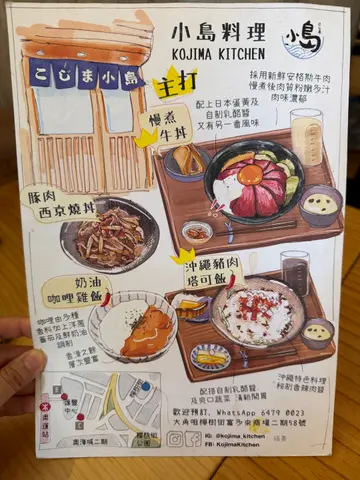 小島料理
KOJIMA KITCHEN
小島
こじま小島
主打
慢煮
牛丼
採用新鮮安格斯牛肉
慢煮後肉質粉嫩多汁
肉味濃郁
配上日本蛋黃及
自制乳醋醬
又有另一番風味
豚肉
西京燒丼
奶油
咖哩雞飯
咖哩由多種
香料加上洋蔥
蕃茄及鮮奶油
調制
香濃之餘
層次豐富
沖繩豬肉
塔可飯
沖繩特色料理
秘制香辣肉醬
配搭自制乳醋醬
及爽口蔬菜 清新開胃
奧運站
奧海城二期
櫻桃街
公園
歡迎預訂, WhatsApp 6479 0023
大角咀樺樹街富多來商場二期58號
IG: @kojima_kitchen
FB: KojimaKitchen